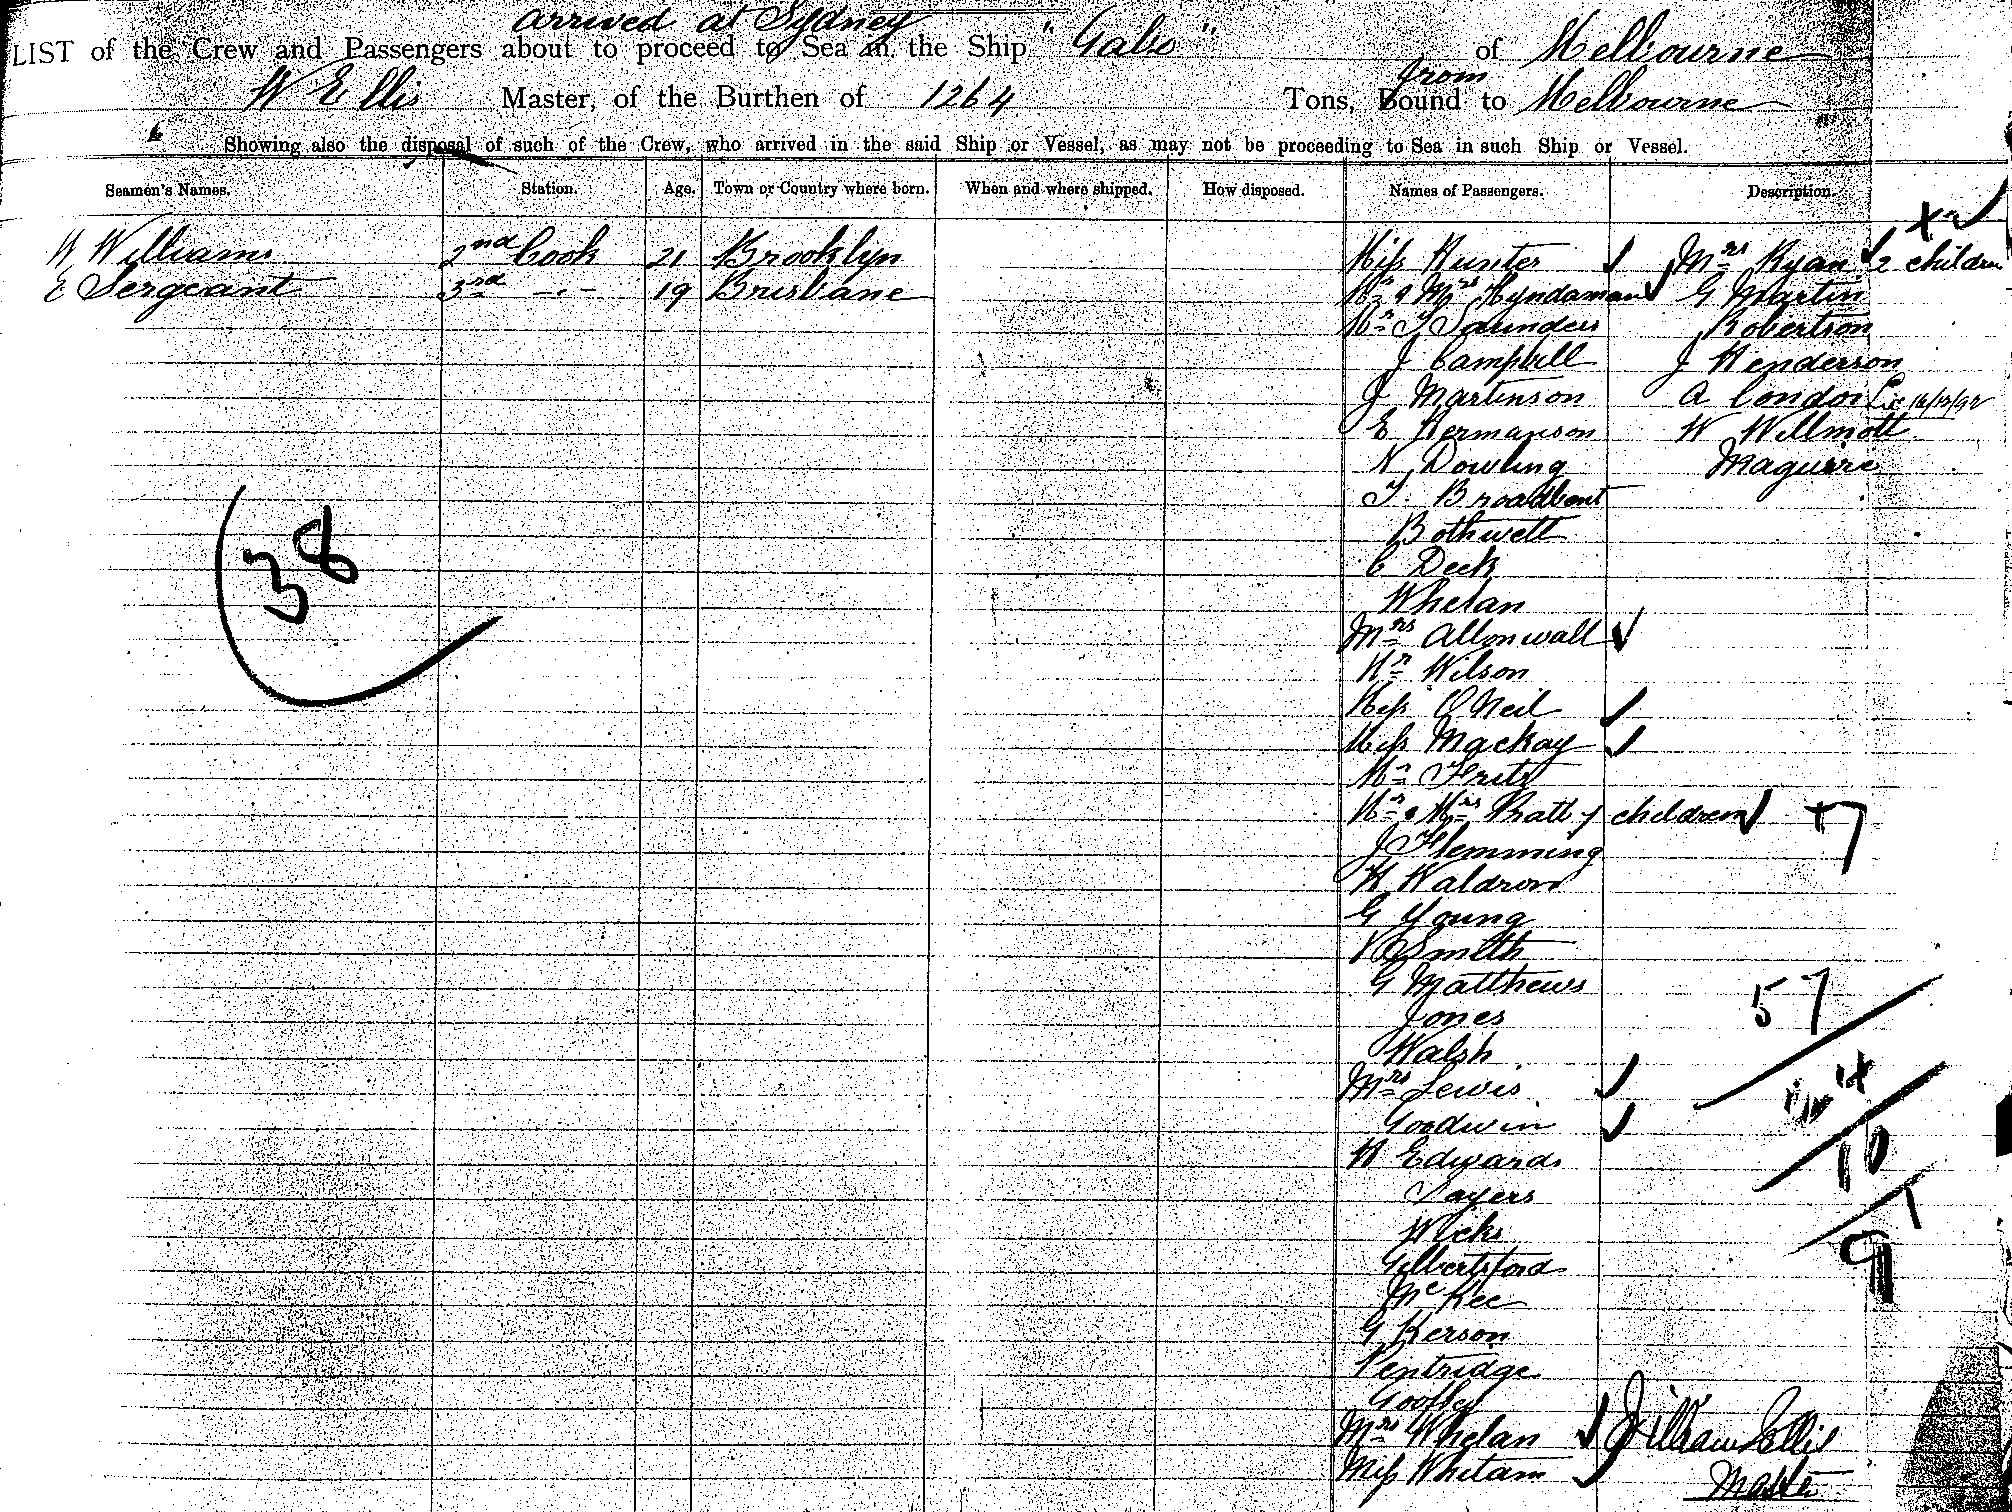 arrived at Sydney
LIST of the Crew and Passengers about to proceed to Sea in the Ship "Gabo" of Melbourne
from
W Ellis Master, of the Burthen of 1264 Tons, Bound to Melbourne
Showing also the disposal of such of the Crew, who arrived in the said Ship or Vessel, as may not be proceeding to Sea in such Ship or Vessel.
Seamen's Names. Station. Age. Town or Country where born. When and where shipped. How disposed. Names of Passengers. Description.
W Williams 2nd Cook 21 Brooklyn
E Sergeant 3rd -,- 19 Brisbane
(38
Miss Hunter
Mr & Mrs Hyndaman
Mr T Saunders
J Campbell
J Martinson
E Hermanson
N Dowling
T. Broadbent
Bothwell
C Deck
Whelan
Mrs Allonwall
Mr Wilson
Miss O'Neil
Miss Mackay
Mr Fritz
Mr & Mrs Pratt 7 children +7
J Flemming
H Waldron
G Young
Smith
G Matthews
Jones
Walsh
Mrs Lewis
Goodwin
H Edwards
Sayers
Wicks
Gilbertsford
McKee
G Kerson
Pentridge
Mrs Whelan
Miss Whitam
+2
Mrs Ryan 2 children
G Martin
Robertson
J Henderson
A London
W Willmott
Maguire
57
14
10
1
9
William Ellis
Master